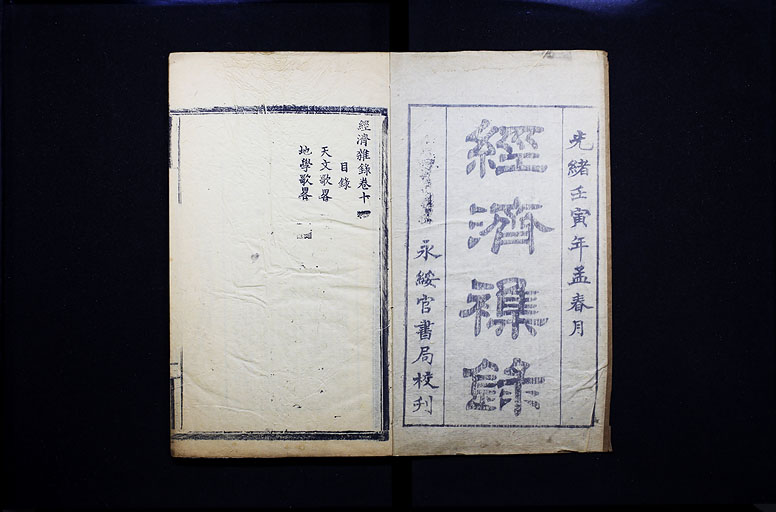 光緒壬寅年孟春月
經濟襍錄
永綏官書局校刊
經濟雜錄卷十
目錄
天文歌畧
地學歌畧